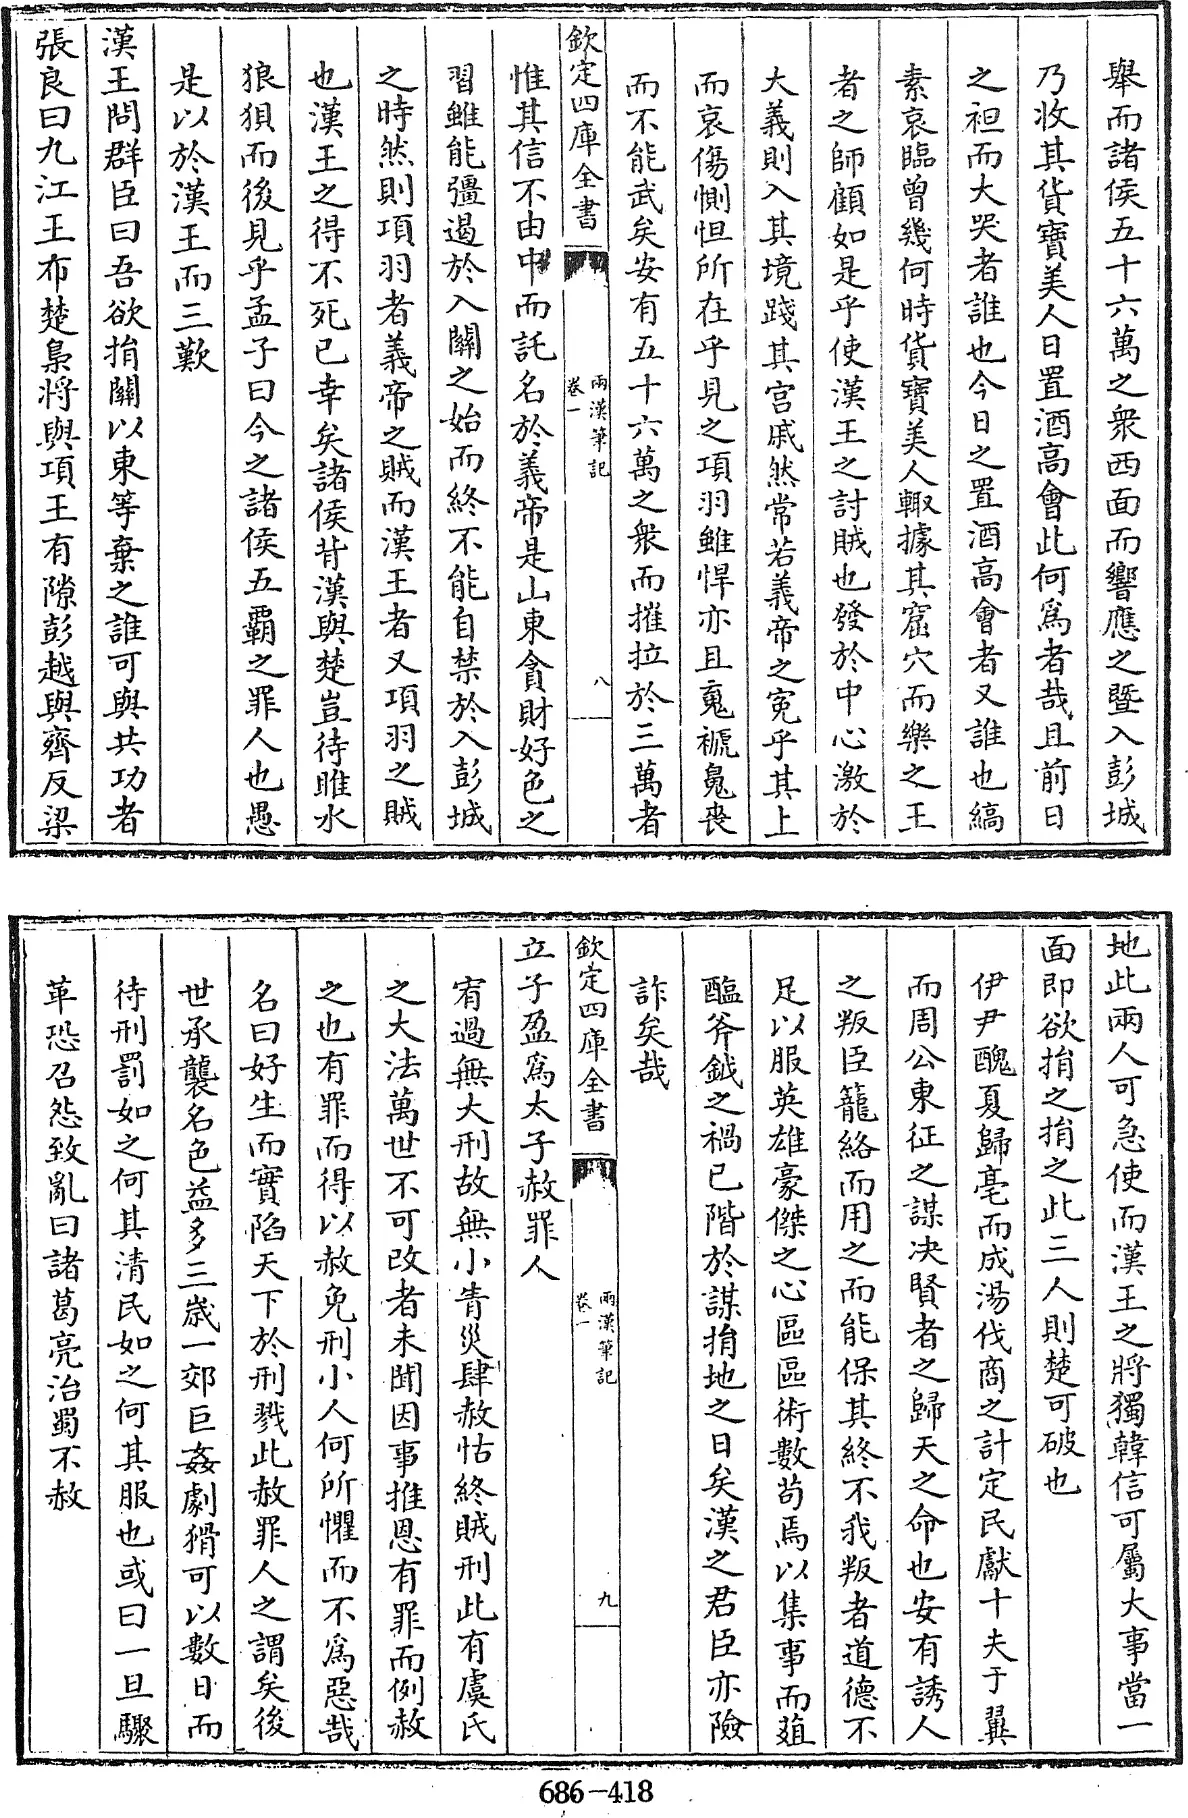 舉而諸侯五十六萬之衆西面而響應之曁入彭城
乃收其貨寶美人日置酒高會此何爲者哉且前日
之袒而大哭者誰也今日之置酒高會者又誰也縞
素哀臨曾幾何時貨寶美人輙據其窟穴而樂之王
者之師顧如是乎使漢王之討賊也發於中心激於
大義則入其境踐其宫戚然常若義帝之寃乎其上
而哀傷惻怛所在乎見之項羽雖悍亦且䰟褫鬼喪
而不能武矣安有五十六萬之衆而摧拉於三萬者
欽定四庫全書
兩漢筆記
卷一
八
惟其信不由中而託名於義帝是山東貪財好色之
習雖能彊遏於入關之始而終不能自禁於入彭城
之時然則項羽者義帝之賊而漢王者又項羽之賊
也漢王之得不死已幸矣諸侯背漢與楚豈待睢水
狼狽而後見乎孟子曰今之諸侯五覇之罪人也愚
是以於漢王而三歎
漢王問群臣曰吾欲捐關以東等棄之誰可與共功者
張良曰九江王布楚梟將與項王有隙彭越與齊反梁
地此兩人可急使而漢王之將獨韓信可屬大事當一
面即欲捐之捐之此三人則楚可破也
伊尹醜夏歸亳而成湯伐商之計定民獻十夫于翼
而周公東征之謀决賢者之歸天之命也安有誘人
之叛臣籠絡而用之而能保其終不我叛者道德不
足以服英雄豪傑之心區區術數茍焉以集事而葅
醢斧鉞之禍已階於謀捐地之日矣漢之君臣亦險
詐矣哉
欽定四庫全書
兩漢筆記
卷一
九
立子盈爲太子赦罪人
宥過無大刑故無小眚災肆赦怙終賊刑此有虞氏
之大法萬世不可改者未聞因事推恩有罪而例赦
之也有罪而得以赦免刑小人何所懼而不爲惡哉
名曰好生而實陷天下於刑戮此赦罪人之謂矣後
世承襲名色益多三歲一郊巨姦劇猾可以數日而
待刑罰如之何其清民如之何其服也或曰一旦驟
革恐召怨致亂曰諸葛亮治蜀不赦
686-418